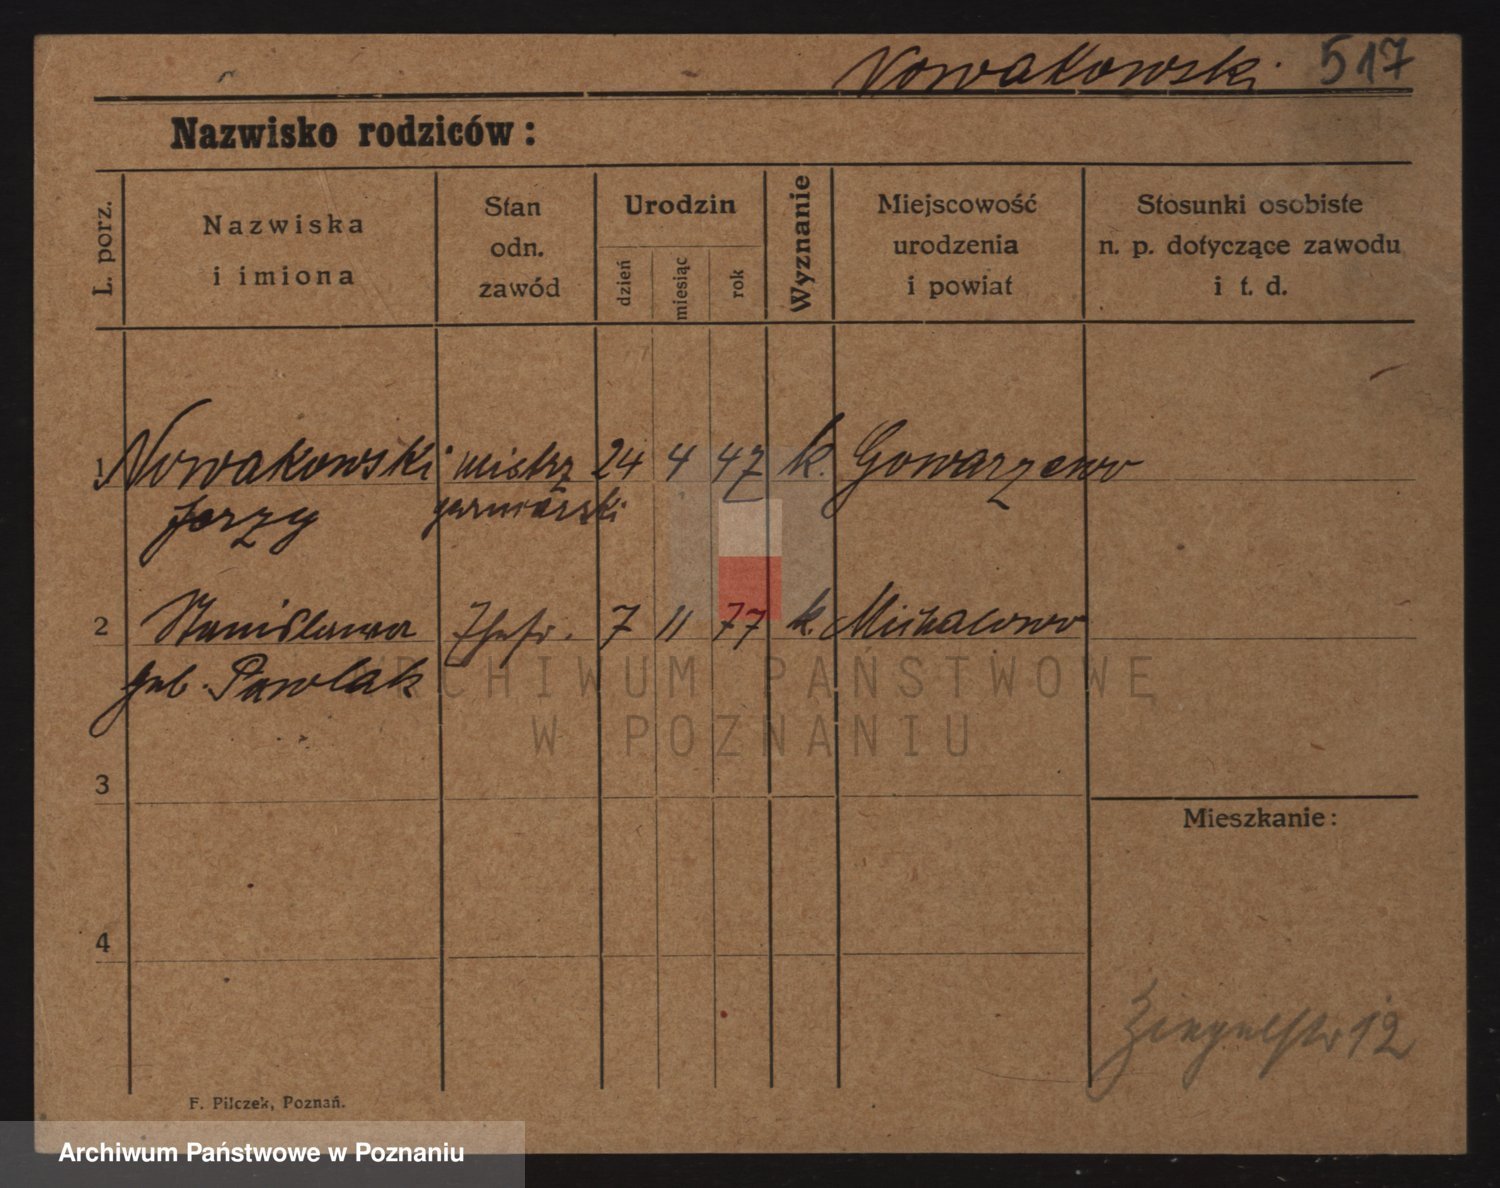 Nowakowski 517
Nazwisko rodziców:
L. porz.
Nazwiska
i imiona
Stan
odn.
zawód
Urodzin
dzień
miesiąc
rok
Wyznanie
Miejscowość
urodzenia
i powiat
Stosunki osobiste
n. p. dotyczące zawodu
i t. d.
1 Nowakowski mistrz 24 4 47 k. Gowarzewo
Jerzy
2 Stanisława 7 11 77 k. Michalowo
geb. Pawlak
3
4
Mieszkanie:
Ziegelstr 12
F. Pilczek, Poznań.
ARCHIWUM PAŃSTWOWE
W POZNANIU
Archiwum Państwowe w Poznaniu